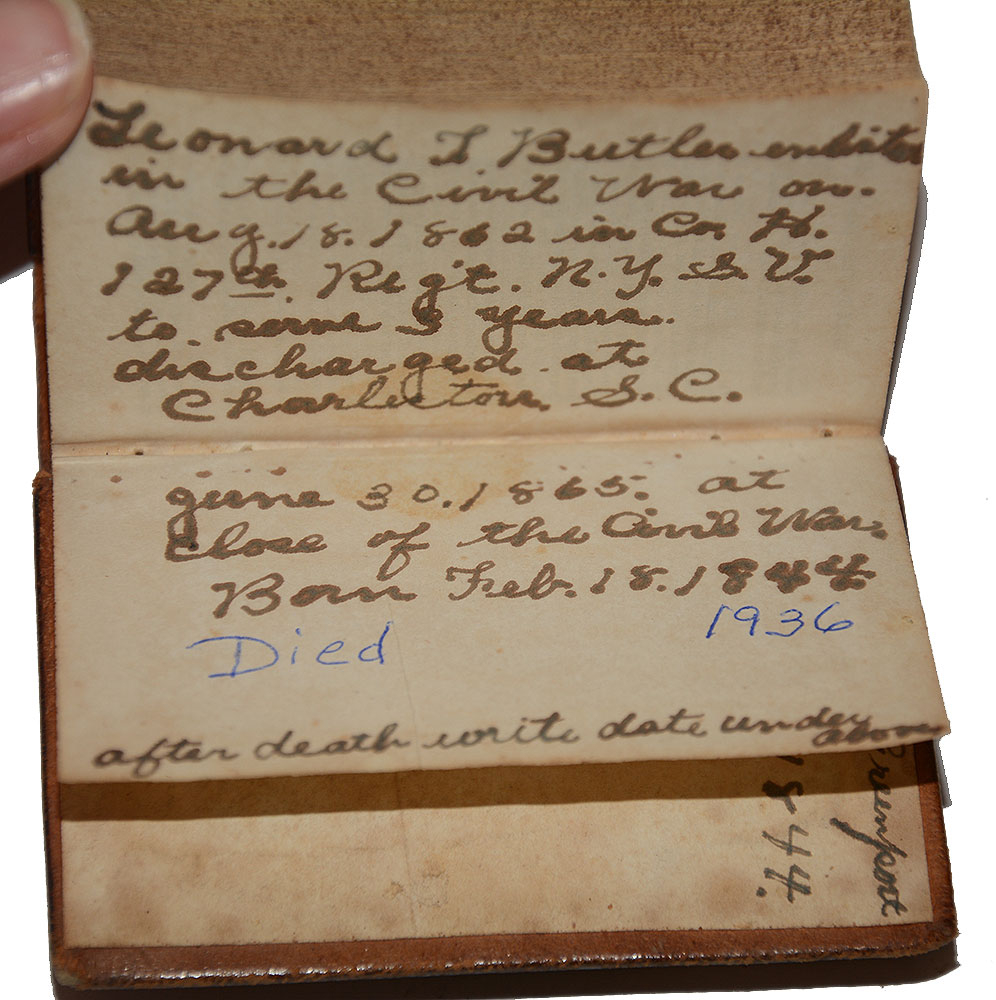 Leonard T Butler enlisted
in the Civil War on.
Aug. 18. 1862 in Co. H.
127th. Regt. N.Y. S. V.
to serve 3 years.
discharged at
Charleston, S. C.
June 30. 1865. at
close of the Civil War.
Born Feb. 18. 1844
Died 1936
after death write date under
above
1844.